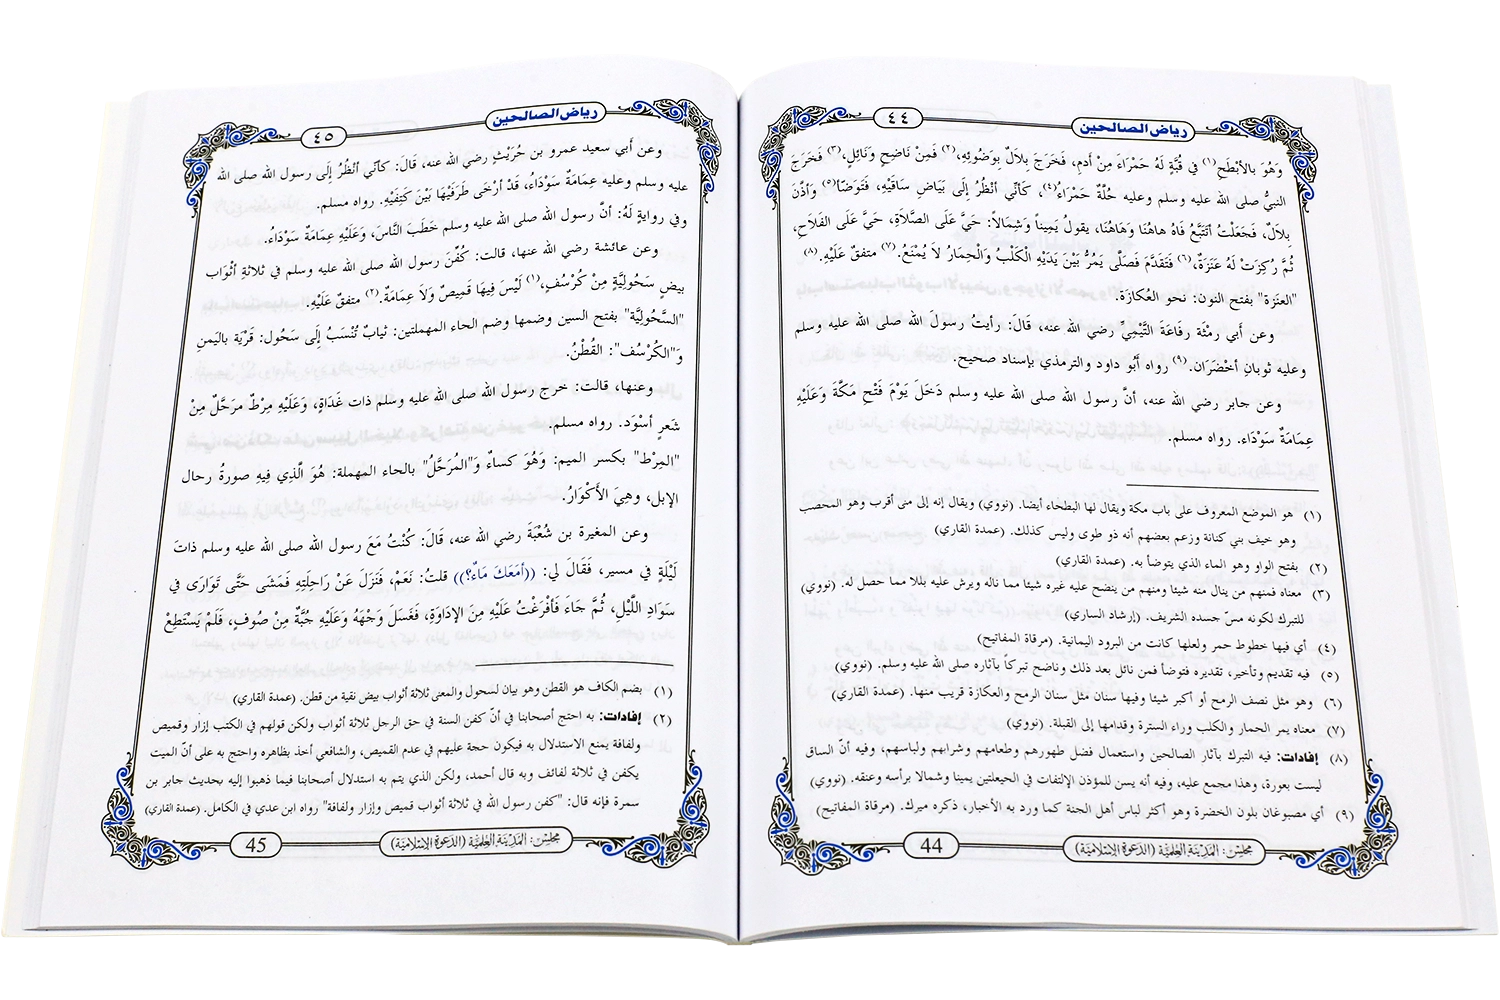 رياض الصالحين
٤٤
وَهُوَ بالأبْطَحِ(١) في قُبَّةٍ لَهُ حَمْرَاءَ مِنْ أدَمٍ، فَخَرَجَ بِلاَلٌ بِوَضُوئِهِ،(٢) فَمِنْ نَاضِحٍ وَنَائِلٍ،(٣) فَخَرَجَ
النبيُّ صلى الله عليه وسلم وعليه حُلَّةٌ حَمْرَاءُ(٤)، كَأنِّي أنْظُرُ إلَى بَيَاضِ سَاقَيْهِ، فَتَوَضَّأ(٥) وَأذَّنَ
بِلاَلٌ، فَجَعَلْتُ أتَتَبَّعُ فَاهُ هاهُنَا وَهَاهُنَا، يقولُ يَمِيناً وَشِمَالاً: حَيَّ عَلَى الصَّلاَةِ، حَيَّ عَلَى الفَلاَحِ،
ثُمَّ رُكِزَتْ لَهُ عَنَزَةٌ،(٦) فَتَقَدَّمَ فَصَلَّى يَمُرُّ بَيْنَ يَدَيْهِ الْكَلْبُ وَالْحِمَارُ لاَ يُمْنَعُ.(٧) متفقٌ عَلَيْهِ.(٨)
"العنَزة" بفتح النون: نحو العُكازَة.
وعن أَبي رِمْثَة رفَاعَةَ التَّيْمِيِّ رضي الله عنه، قَالَ: رأيتُ رسولَ الله صلى الله عليه وسلم
وعليه ثوبانِ أخْضَرَان.(٩) رواه أَبُو داود والترمذي بإسناد صحيح.
وعن جابر رضي الله عنه، أنَّ رسول الله صلى الله عليه وسلم دَخَلَ يَوْمَ فَتْحِ مَكَّةَ وَعَلَيْهِ
عِمَامَةٌ سَوْدَاء. رواه مسلم.
(١) هو الموضع المعروف على باب مكة ويقال لها البطحاء أيضا. (نووي) ويقال إنه إلى منى أقرب وهو المحصب
وهو خيف بني كنانة وزعم بعضهم أنه ذو طوى وليس كذلك. (عمدة القاري)
(٢) بفتح الواو وهو الماء الذي يتوضأ به. (عمدة القاري)
(٣) معناه فمنهم من ينال منه شيئا ومنهم من ينضح عليه غيره شيئا مما ناله ويرش عليه بللا مما حصل له. (نووي)
للتبرك لكونه مسّ جسده الشريف. (إرشاد الساري)
(٤) أي فيها خطوط حمر ولعلها كانت من البرود اليمانية. (مرقاة المفاتيح)
(٥) فيه تقديم وتأخير، تقديره فتوضأ فمن نائل بعد ذلك وناضح تبركاً بآثاره صلى الله عليه وسلم. (نووي)
(٦) وهو مثل نصف الرمح أو أكبر شيئا وفيها سنان مثل سنان الرمح والعكازة قريب منها. (عمدة القاري)
(٧) معناه يمر الحمار والكلب وراء السترة وقدامها إلى القبلة. (نووي)
(٨) إفادات: فيه التبرك بآثار الصالحين واستعمال فضل طهورهم وطعامهم وشرابهم ولباسهم، وفيه أنّ الساق
ليست بعورة، وهذا مجمع عليه، وفيه أنه يسن للمؤذن الإلتفات في الحيعلتين يمينا وشمالا برأسه وعنقه. (نووي)
(٩) أي مصبوغان بلون الخضرة وهو أكثر لباس أهل الجنة كما ورد به الأخبار، ذكره ميرك. (مرقاة المفاتيح)
مجلس: المدينة العلمية (الدعوة الإسلامية)
44
رياض الصالحين
٤٥
وعن أَبي سعيد عمرو بن حُرَيْثٍ رضي الله عنه، قَالَ: كأنّي أنْظُرُ إِلَى رسول الله صلى الله
عليه وسلم وعليه عِمَامَةٌ سَوْدَاءُ، قَدْ أرْخَى طَرَفَيْهَا بَيْنَ كَتِفَيْهِ. رواه مسلم.
وفي روايةٍ لَهُ: أنَّ رسول الله صلى الله عليه وسلم خَطَبَ النَّاسَ، وَعَلَيْهِ عِمَامَةٌ سَوْدَاءُ.
وعن عائشة رضي الله عنها، قالت: كُفِّنَ رسول الله صلى الله عليه وسلم في ثلاثةِ أثْوَاب
بيضٍ سَحُولِيَّةٍ مِنْ كُرْسُفٍ،(١) لَيْسَ فِيهَا قَمِيصٌ وَلاَ عِمَامَةٌ.(٢) متفقٌ عَلَيْهِ.
"السَّحُولِيَّة" بفتح السين وضمها وضم الحاء المهملتين: ثيابٌ تُنْسَبُ إِلَى سَحُول: قَرْيَة باليَمنِ
وَ"الكُرْسُف": القُطْنُ.
وعنها، قالت: خرج رسول الله صلى الله عليه وسلم ذات غَدَاةٍ، وَعَلَيْهِ مِرْطٌ مرَحَّلٌ مِنْ
شَعرٍ أسْوَد. رواه مسلم.
"المِرْط" بكسر الميم: وَهُوَ كساءٌ وَ"المُرَحَّلُ" بالحاء المهملة: هُوَ الَّذِي فِيهِ صورةُ رحال
الإبل، وَهِيَ الأَكْوَارُ.
وعن المغيرة بن شُعْبَةَ رضي الله عنه، قَالَ: كُنْتُ مَعَ رسول الله صلى الله عليه وسلم ذاتَ
لَيْلَةٍ في مسير، فَقَالَ لي: ((أمَعَكَ مَاءٌ؟)) قلتُ: نَعَمْ، فَنَزَلَ عَنْ رَاحِلَتِهِ فَمَشَى حَتَّى تَوَارَى في
سَوَادِ اللَّيْلِ، ثُمَّ جَاءَ فَأفْرَغْتُ عَلَيْهِ مِنَ الإدَاوَةِ، فَغَسَلَ وَجْهَهُ وَعَلَيْهِ جُبَّةٌ مِنْ صُوفٍ، فَلَمْ يَسْتَطِعْ
(١) بضم الكاف هو القطن وهو بيان لسحول والمعنى ثلاثة أثواب بيض نقية من قطن. (عمدة القاري)
(٢) إفادات: به احتج أصحابنا في أنّ كفن السنة في حق الرجل ثلاثة أثواب ولكن قولهم في الكتب إزار وقميص
ولفافة يمنع الاستدلال به فيكون حجة عليهم في عدم القميص، والشافعي أخذ بظاهره واحتج به على أنّ الميت
يكفن في ثلاثة لفائف وبه قال أحمد، ولكن الذي يتم به استدلال أصحابنا فيما ذهبوا إليه بحديث جابر بن
سمرة فإنه قال: "كفن رسول الله في ثلاثة أثواب قميص وإزار ولفافة" رواه ابن عدي في الكامل. (عمدة القاري)
مجلس: المدينة العلمية (الدعوة الإسلامية)
45